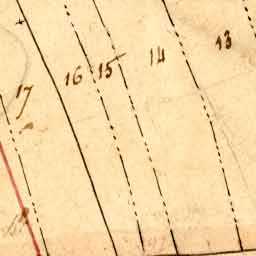 13
14
16 15
17